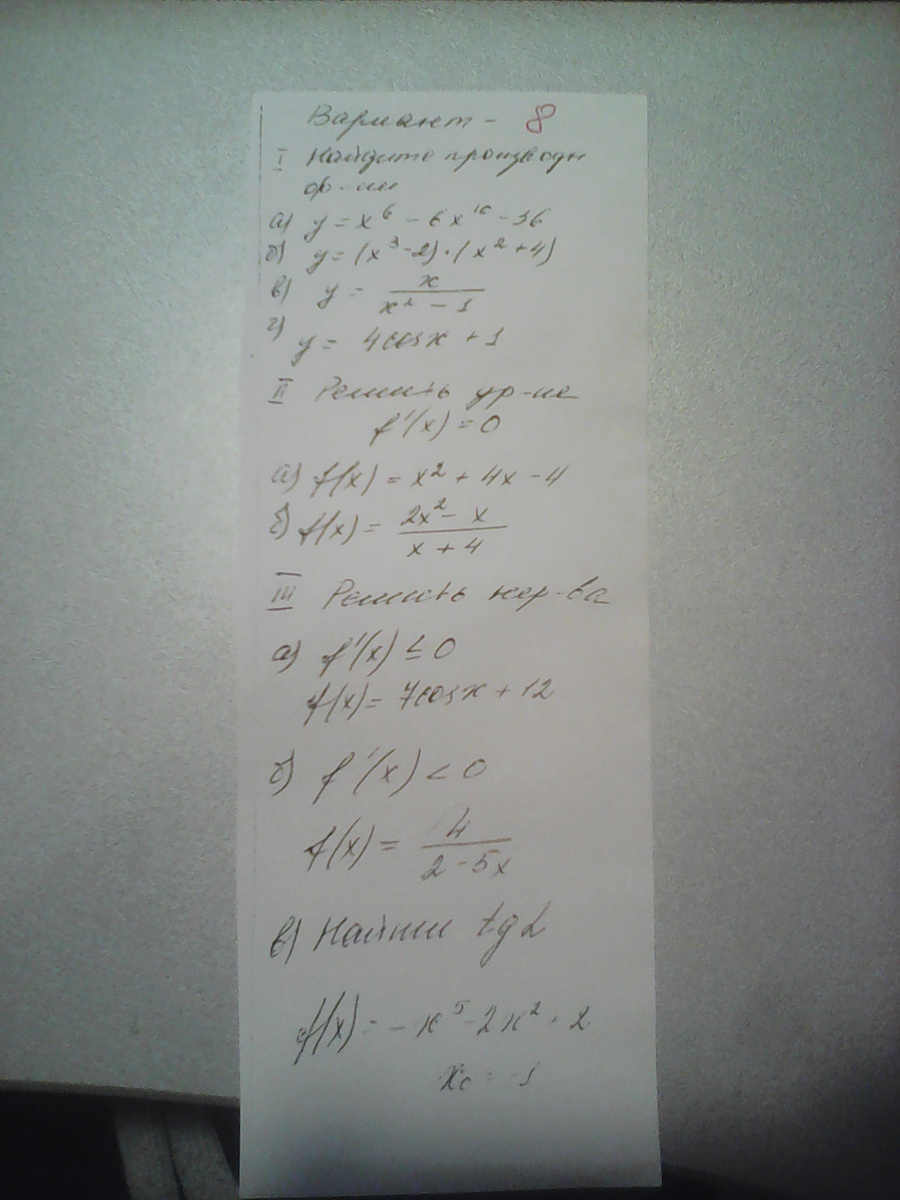 Вариант - 8
I Найдите производн
ф-ии
а) y = x⁶ - 6x¹⁰ - 36
б) y = (x³ - 2) · (x² + 4)
в) y = x / (x² - 1)
г) y = 4cosx + 1
II Решить ур-ие
f'(x) = 0
а) f(x) = x² + 4x - 4
б) f(x) = (2x² - x) / (x + 4)
III Решить нер-ва
а) f'(x) ≤ 0
f(x) = 7cosx + 12
б) f'(x) < 0
f(x) = 4 / (2 - 5x)
в) Найти tg α
f(x) = - x⁵ - 2x² + 2
x₀ = -1